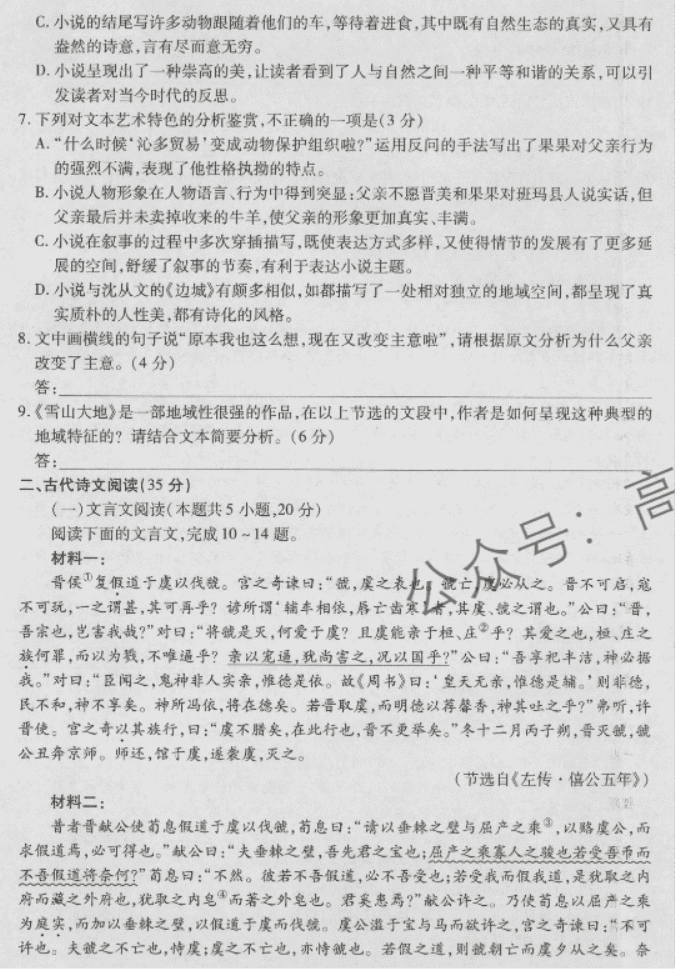 C. 小说的结尾写许多动物跟随着他们的车,等待着进食,其中既有自然生态的真实,又具有
盎然的诗意,言有尽而意无穷。
D. 小说呈现出了一种崇高的美,让读者看到了人与自然之间一种平等和谐的关系,可以引
发读者对当今时代的反思。
7. 下列对文本艺术特色的分析鉴赏,不正确的一项是(3 分)
A. “什么时候‘沁多贸易’变成动物保护组织啦?”运用反问的手法写出了果果对父亲行为
的强烈不满,表现了他性格执拗的特点。
B. 小说人物形象在人物语言、行为中得到突显:父亲不愿晋美和果果对班玛县人说实话,但
父亲最后并未卖掉收来的牛羊,使父亲的形象更加真实、丰满。
C. 小说在叙事的过程中多次穿插描写,既使表达方式多样,又使得情节的发展有了更多延
展的空间,舒缓了叙事的节奏,有利于表达小说主题。
D. 小说与沈从文的《边城》有颇多相似,如都描写了一处相对独立的地域空间,都呈现了真
实质朴的人性美,都有诗化的风格。
8. 文中画横线的句子说“原本我也这么想,现在又改变主意啦”,请根据原文分析为什么父亲
改变了主意。(4 分)
答:
9.《雪山大地》是一部地域性很强的作品,在以上节选的文段中,作者是如何呈现这种典型的
地域特征的? 请结合文本简要分析。(6 分)
答:
二、古代诗文阅读(35 分)
(一)文言文阅读(本题共 5 小题,20 分)
阅读下面的文言文,完成 10~14 题。
材料一:
晋侯①复假道于虞以伐虢。宫之奇谏曰:“虢,虞之表也。虢亡,虞必从之。晋不可启,寇
不可玩,一之谓甚,其可再乎? 谚所谓‘辅车相依,唇亡齿寒’者,其虞、虢之谓也。”公曰:“晋,
吾宗也,岂害我哉?”对曰:“将虢是灭,何爱于虞? 且虞能亲于桓、庄②乎? 其爱之也,桓、庄之
族何罪,而以为戮,不唯逼乎? 亲以宠逼,犹尚害之,况以国乎?”公曰:“吾享祀丰洁,神必据
我。”对曰:“臣闻之,鬼神非人实亲,惟德是依。故《周书》曰:‘皇天无亲,惟德是辅。’则非德,
民不和,神不享矣。神所冯依,将在德矣。若晋取虞,而明德以荐馨香,神其吐之乎?”弗听,许
晋使。宫之奇以其族行,曰:“虞不腊矣,在此行也,晋不更举矣。”冬十二月丙子朔,晋灭虢,虢
公丑奔京师。师还,馆于虞,遂袭虞,灭之。
(节选自《左传·僖公五年》)
材料二:
昔者晋献公使荀息假道于虞以伐虢,荀息曰:“请以垂棘之璧与屈产之乘③,以赂虞公,而
求假道焉,必可得也。”献公曰:“夫垂棘之璧,吾先君之宝也;屈产之乘寡人之骏也若受吾币而
不吾假道将奈何?”荀息曰:“不然。彼若不吾假道,必不吾受也;若受我而假我道,是犹取之内
府而藏之外府也,犹取之内皂④而著之外皂也。君奚患焉?”献公许之。乃使荀息以屈产之乘
为庭实,而加以垂棘之璧,以假道于虞而伐虢。虞公滥于宝与马而欲许之,宫之奇谏曰:“不可
许也。夫虢之不亡也,恃虞;虞之不亡也,亦恃虢也。若假之道,则虢朝亡而虞夕从之矣。奈
公众号:高